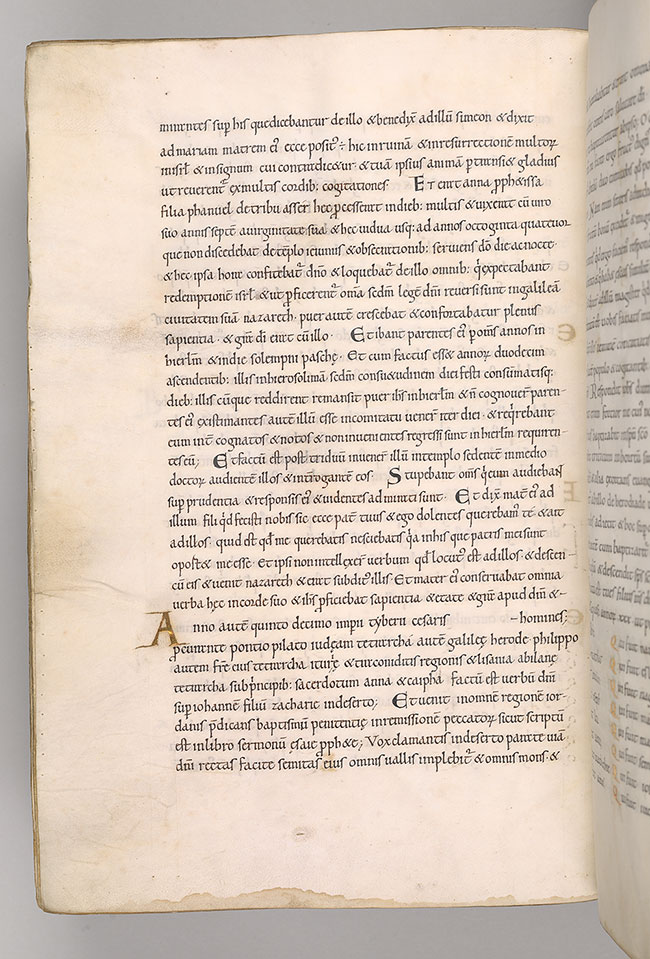 mirantes sup his que dicebantur de illo & benedix̄ ad illū simeon & dixit
ad mariam matrem ei᾽ ecce posit᾽ ÷ hic in ruinā & in resurrectionē multoꝝ
in isrł & in signum cui contradic&ur · & tuā ipsius animā ptransi& gladius
ut reuelent᷑ ex multis cordib; cogitationes · Et erat anna ꝓph&issa
filia phanuel de tribu asser hec ꝓcesserat in dieb; multis & uixerat cū uiro
suo annis septē a uirginitate sua · & hec uidua usq; ad annos octoginta quatuor
que non discedebat de tēplo ieiuniis & obsecrationib; seruiens dō die ac nocte ·
& hec ipsa hora confitebat᷑ dño & loquebat᷑ de illo omnib; q̇ expectabant
redemptionē isrł & ut ꝓficerent᷑ om̄a scdm̄ legē dñi reuersi sunt in galileā
ciuitatem suā nazareth · puer autē crescebat & confortabatur plenus
sapientia · & gr̄a di erat cū illo · Et ibant parentes ei᾽ p om̄s annos in
hierłm & in die solempni paschę · Et cum factus ess& annoꝝ duodecim
ascendentib; illis in hierosolimā scdm̄ consu&udinem diei festi consūmatisq;
dieb; illis cūque reddirent remansit puer ihs in hierłm & ñ cognouer̄ paren-
tes ei᾽ existimantes autē illū esse in comitatu uener̄ iter diei · & reqrebant
eum int̄ cognatos & notos & non inuenientes regressi sunt in hierłm requiren-
tes eū; Et factū est post triduū inuener̄ illū in templo sedentē in medio
doctoꝝ audientē illos & int̄rogantē eos · Stupebant om̄s q̇ eum audiebant
sup prudentia & responsis ei᾽ & uidentes admirati sunt · Et dix̄ mat̄ ei᾽ ad
illum fili qd fecisti nobis sic ecce pat̄ tuus & ego dolentes querebam᾽ te & ait
ad illos quid est qd me querebatis nesciebatis q̇a in his que patris mei sunt
oport& me esse · Et ipsi non intellexer̄ uerbum qd locut᾽ est ad illos · & descen-
cū eis & uenit nazareth & erat subdit᾽ illis · Et mater ei᾽ conseruabat omnia
uerba hec in corde suo & ihs ꝓficiebat sapientia & etate & gr̄a apud dm̄ & -
Anno autē quinto decimo impii tyberii cesaris - homines;
ꝓcurante pontio pilato iudęam tetrarcha autē galilęę herode · philippo
autem fr̄e eius tetrarcha iturię & traconitidis regionis & lisania abilanę
tetrarcha sub principib; sacerdotum anna & caipha factū est uerbū dm̄
sup iohannē filiū zacharie in deserto; Et uenit in omnē regionē ior-
danis p̄dicans baptismū penitentię in remissionē peccatoꝝ sicut scriptū
est in libro sermonū ęsaię ꝓph&ę; Vox clamantis in deserto parate uiā
dñi rectas facite semitas eius omnis uallis implebit᷑ & omnis mons · &